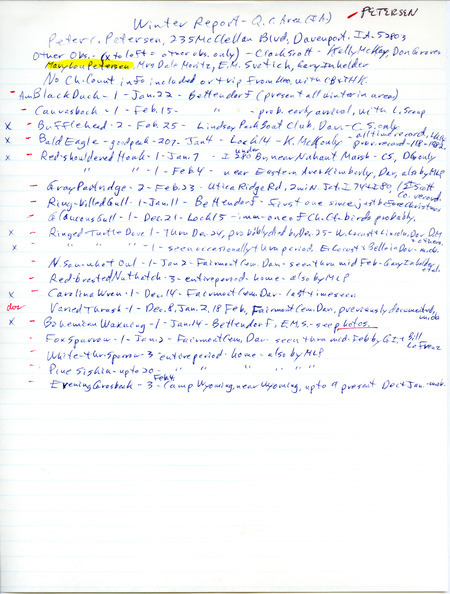 Winter Report - Q.C. Area (IA)
PETERSEN
Peter C. Petersen, 235 McClellan Blvd, Davenport, IA. 52803
Other Obs. - (x to left = other obs. only) - Clark Scott - Kelly McKay, Don Graves
Mary Lou Petersen, Mrs Dale Moritz, E.M. Svetich, Gary Inhelder
No Ch. Count info included or trip from with CBS IHK.
- Am Black Duck - 1 - Jan. 22 - Bettendorf (present all winter in area)
- Canvasback - 1 - Feb. 15 - " - prob. early arrival, with L. Scaup
x - Bufflehead - 2 - Feb 25 - Lindsay Park Boat Club, Dav - C.S. only
x - Bald Eagle - good peak - 207 - Jan 4 - Lock 14 - K. McK only - all time record, prev. record - 118 - 1982
x - Red-shouldered Hawk - 1 - Jan. 7 - I 280 Br, under near Nahant Marsh - CS, DG only
- " " - 1 - Feb 4 - near Eastern Ave & Kimberly, Dav, also by MLP
- Gray Partridge - 2 - Feb. 23 - Utica Ridge Rd, 2 mi N. Jct I 74 & I 80, 1st Scott Co. record
- Ring-billed Gull - 1 - Jan. 11 - Bettendorf - first one since just before Christmas
- Glaucous Gull - 1 - Dec. 21 - Lock 15 - imm - one of Ch. Ct. birds probably.
x - Ringed Turtle Dove 1 - thru Dec. 24, probibly died by Dec. 25 - W. Locust & Lincoln, Dav. DM
x - " " - 1 - seen occasionally thru period. E. Locust & Belle in Dav - mob.
- N. Saw-whet Owl - 1 - Jan 2 - Fairmount Cem. Dav - seen thru mid Feb - Gary Inhelder et al.
- Red-breasted Nuthatch - 3 - entire period - home - also by MLP
x - Carolina Wren - 1 - Dec. 14 - Fairmount Cem, Dav - last time seen
doc Varied Thrush - 1 - Dec. 8, Jan. 2, 18 Feb, Fairmount Cem Dav, previously documented, mob
x - Bohemian Waxwing - 1 - Jan. 14 - Bettendorf, E.M.S. - see photos.
- Fox Sparrow - 1 - Jan. 2 - Fairmount Cem, Dav - seen thru mid Feb by G.I. & Bill
- White-thr. Sparrow - 3 entire period - home - also by MLP
- Pine Siskin - up to 20 - Feb 4 " " " "
- Evening Grosbeak - 3 - Camp Wyoming, near Wyoming, up to 9 present Dec & Jan. - mob.